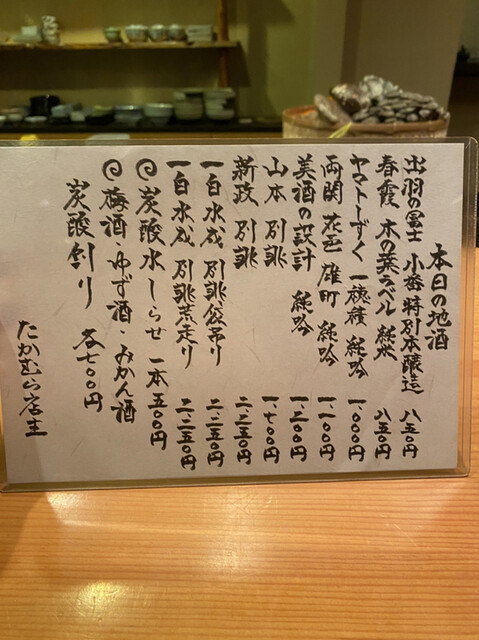 本日の地酒
出羽の冨士 小番 特別本醸造 八五〇円
春霞 木の葉ラベル 純米 八五〇円
ヤマトしずく 一穂積 純吟 一、〇〇〇円
両関 花邑 雄町 純吟 一、一〇〇円
美酒の設計 純吟 一、三〇〇円
山本 別誂 一、七〇〇円
新政 別誂 二、二五〇円
一白水成 別誂袋吊り 二、二五〇円
一白水成 別誂荒走り 二、二五〇円
炭酸水しらせ 一本 五〇〇円
梅酒・ゆず酒・みかん酒
炭酸割り 各七〇〇円
たかむら店主